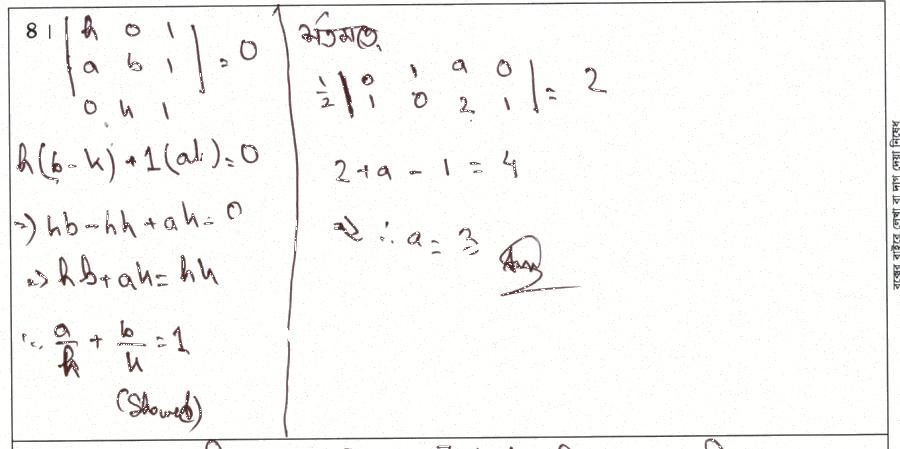 8। | h 0 1 |
| a b 1 | = 0
0 k 1
h(b-k) + 1(ak) = 0
⇒ hb - hk + ak = 0
⇒ hb + ak = hk
∴ a/h + b/k = 1
(Showed)
শর্তমতে,
1/2 | 0 1 a 0 | = 2
1 0 2 1
2 + a - 1 = 4
⇒ ∴ a = 3 Ans
বক্সের বাইরে লেখা বা দাগ দেয়া নিষেধ